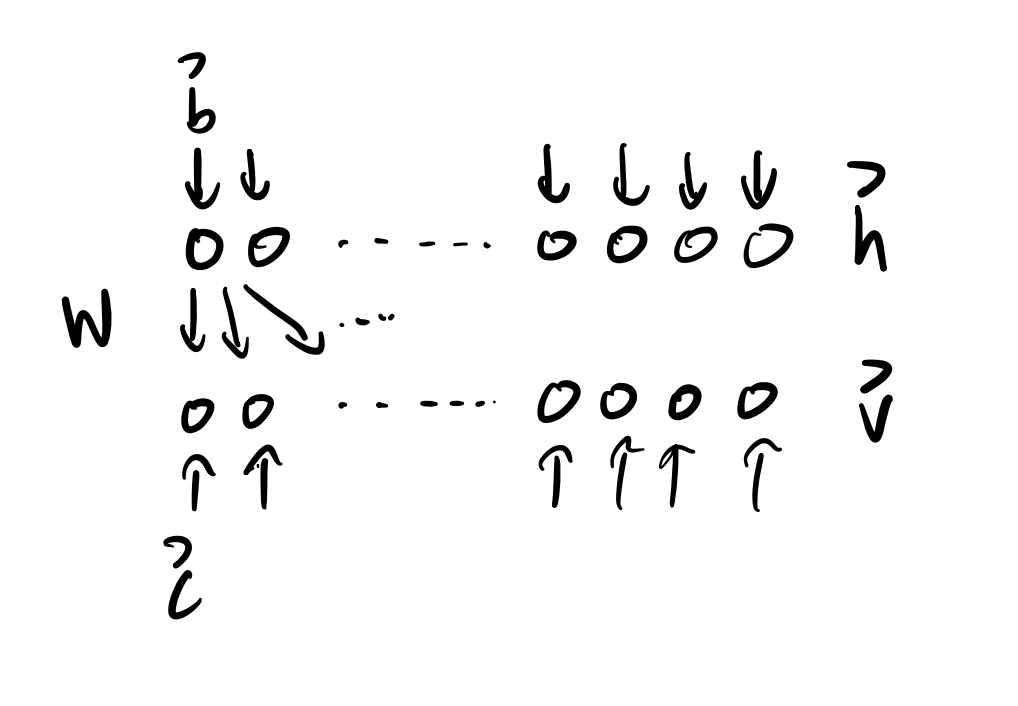 b
h
W
v
c